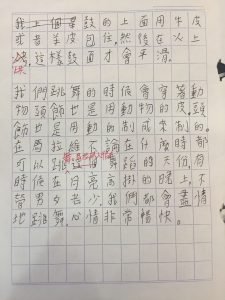 我上個算鼓的上面用牛皮
或者羊皮包住,然後在火上
烤,這樣鼓面才會平滑。
我們跳舞的時候會穿著動
物頭飾也是用動物的皮。頭
飾也是用動的制成來制的。
在馬拉維不論在什麼時都
可以跳這舞蹈的天份,有
時候在月亮高掛的晚上,不
管男女老少,我們都會盡情
地跳舞,心情非常暢快。